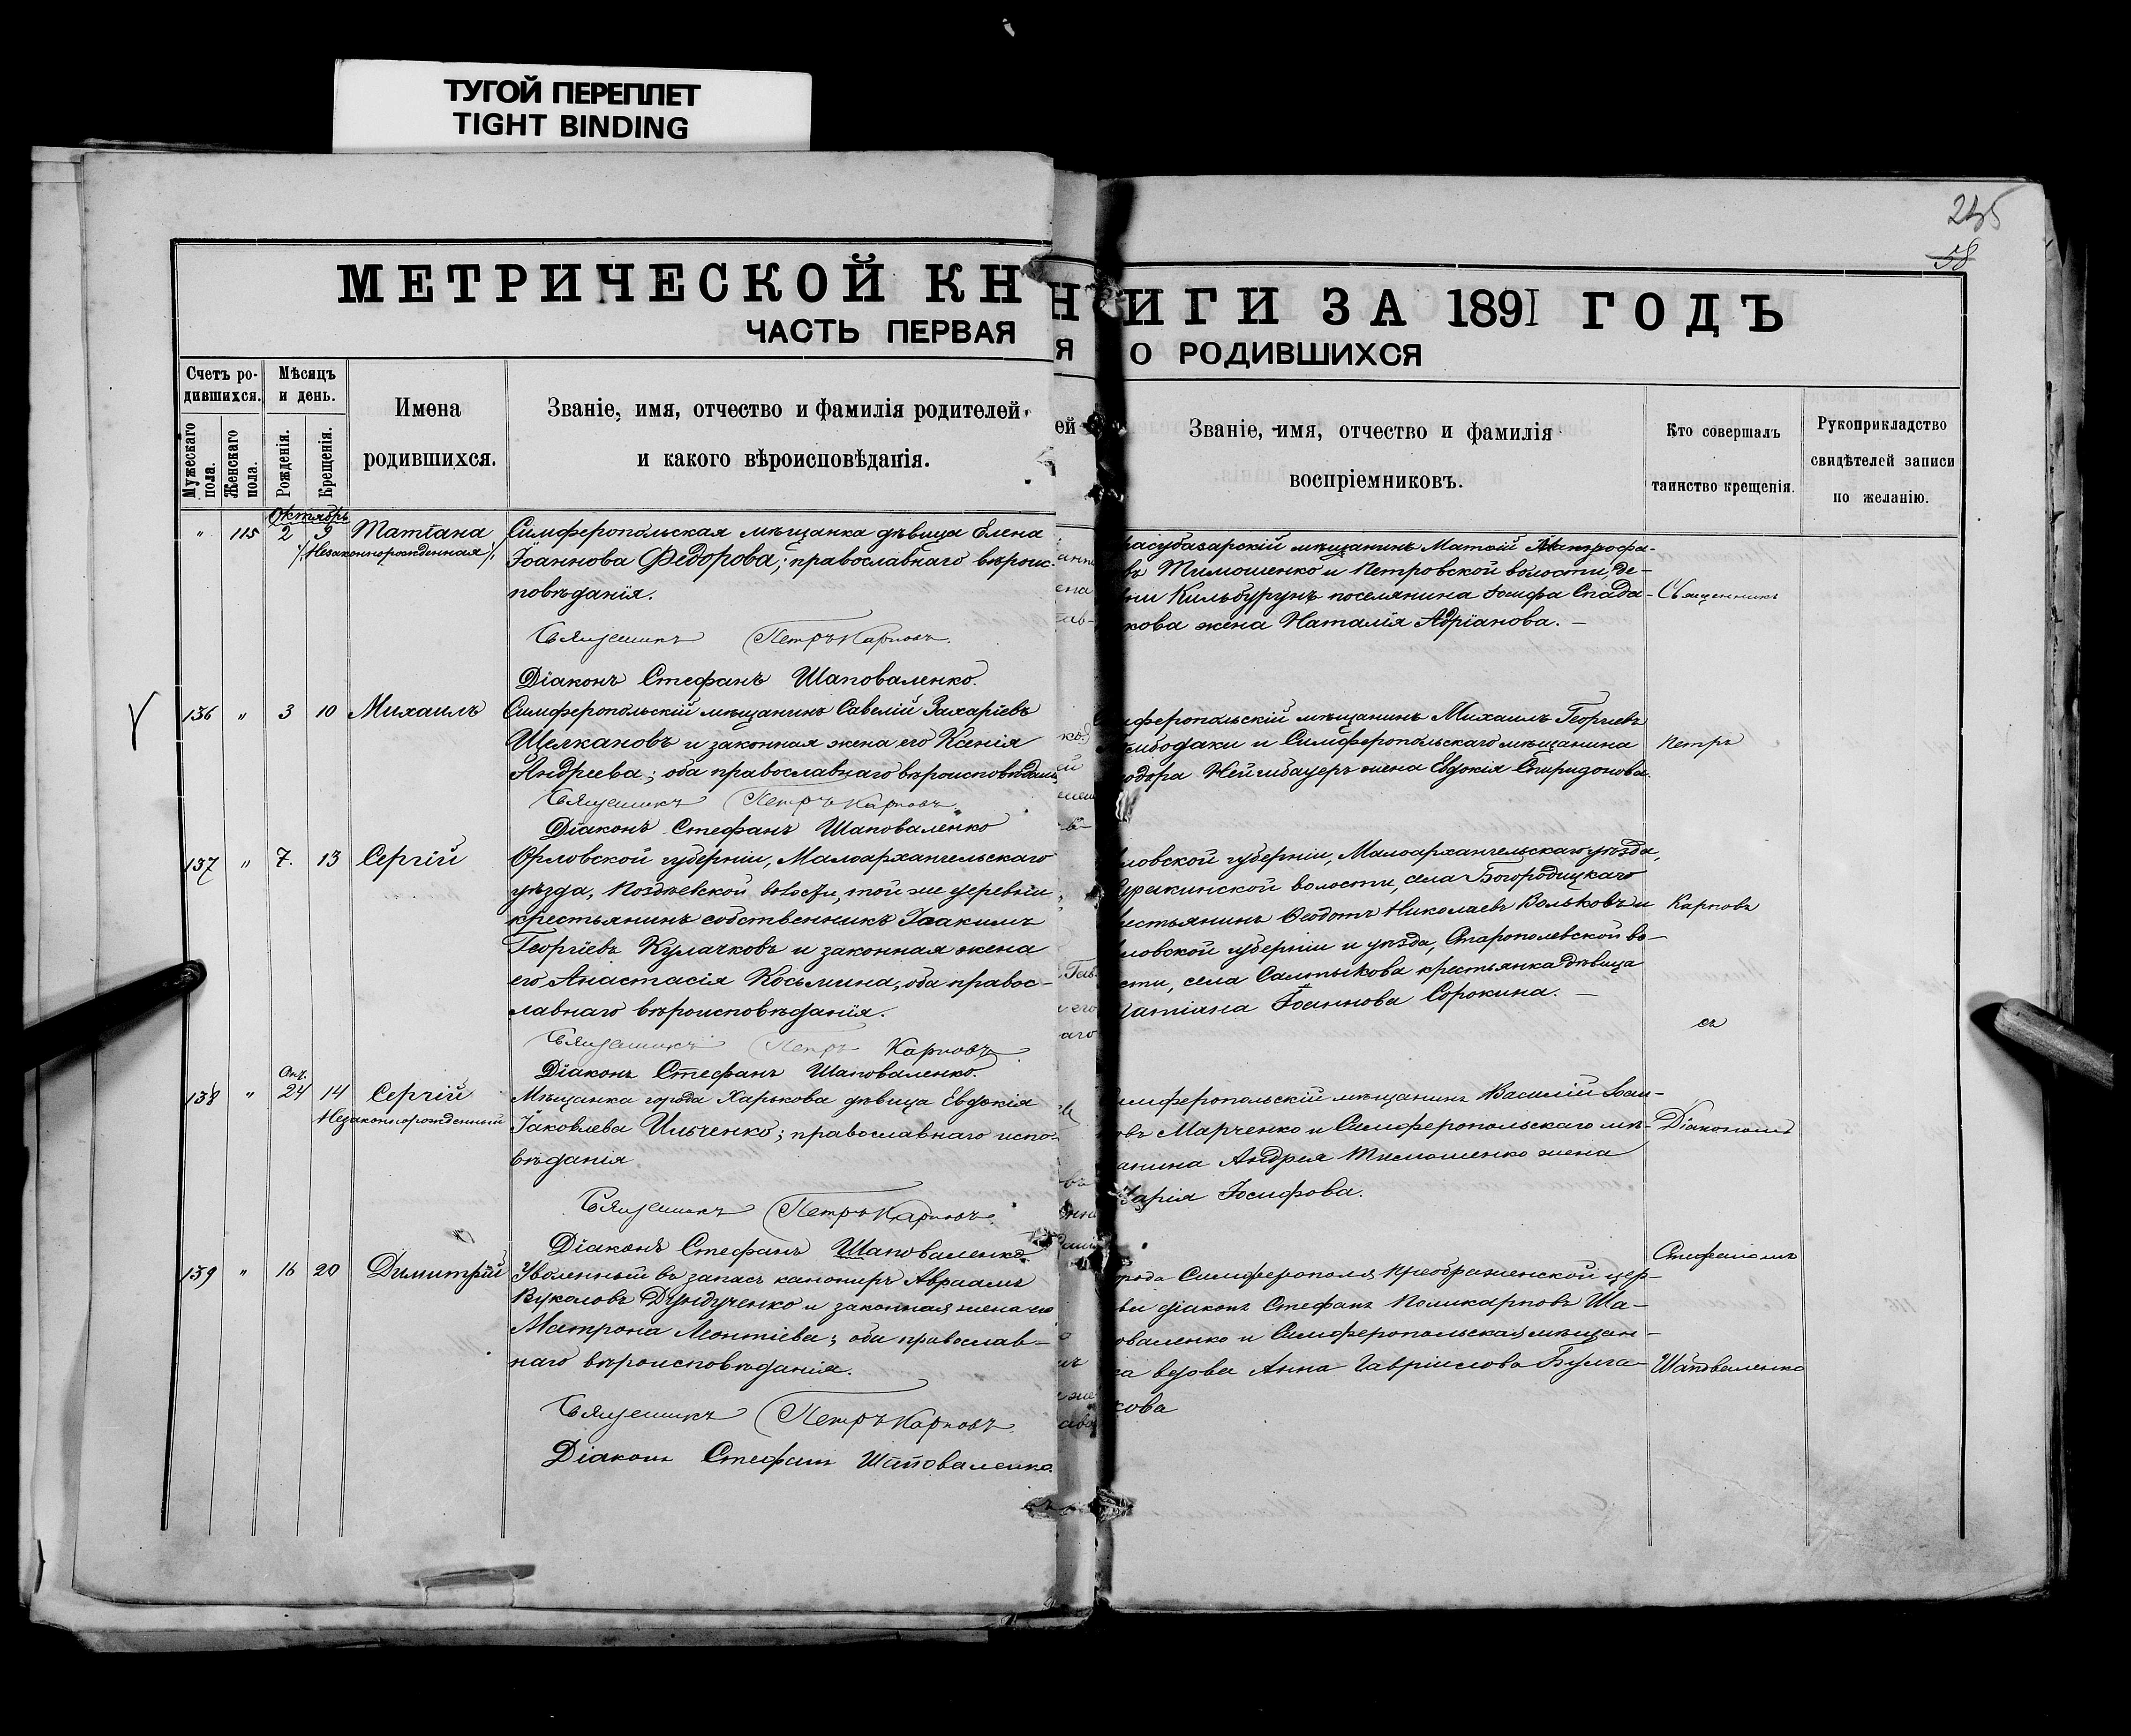 ТУГОЙ ПЕРЕПЛЕТ
TIGHT BINDING
245
58
МЕТРИЧЕСКОЙ КН
ЧАСТЬ ПЕРВАЯ
Счетъ ро-
дившихся.
Мужескаго пола.
Женскаго пола.
Мѣсяцъ
и день.
Рожденія.
Крещенія.
Имена
родившихся.
Званіе, имя, отчество и фамилія родителей
и какого вѣроисповѣданія.
Октябрь
" 115 2 9 Татіана
/Незаконнорожденная/
Симферопольская мѣщанка дѣвица Елена
Іоаннова Федорова; православнаго вѣроис-
повѣданія.
Священникъ Петръ Карповъ.
Діаконъ Стефанъ Шаповаленко.
136 " 3 10 Михаилъ
Симферопольскій мѣщанинъ Савелій Захаріевъ
Щелкановъ и законная жена его Ксенія
Андреева; оба православнаго вѣроисповѣдан.
Священникъ Петръ Карповъ
Діаконъ Стефанъ Шаповаленко
137 " 7. 13 Сергій
Орловской губерніи, Малоархангельскаго
уѣзда, волости, той же деревни
крестьянинъ собственникъ Іоакимъ
Георгіевъ Кулачковъ и законная жена
его Анастасія Косьмина, оба правос-
лавнаго вѣроисповѣданія.
Священникъ Петръ Карповъ
Діаконъ Стефанъ Шаповаленко.
138 " 24 14 Сергій
Незаконнорожденный
Мѣщанка города Харькова дѣвица Евдокія
Іаковлева Ильченко; православнаго испо-
вѣданія
Священникъ Петръ Карповъ.
Діаконъ Стефанъ Шаповаленко.
139 " 16 20 Димитрій
Уволенный въ запасъ канониръ Авраамъ
Вуколовъ и законная жена его
Матрона Леонтіева; оба православ-
наго вѣроисповѣданія.
Священникъ Петръ Карповъ.
Діаконъ Стефанъ Шаповаленко.
ИГИ ЗА 1891 ГОДЪ
О РОДИВШИХСЯ
Званіе, имя, отчество и фамилія
воспріемниковъ.
Кто совершалъ
таинство крещенія.
Рукоприкладство
свидѣтелей записи
по желанію.
расубазарскій мѣщанинъ Матѳій Митрофа-
въ Тимошенко и Петровской волости, де-
вни Кильбурунъ поселянина Іосифа Спада-
кова жена Наталія Адріанова. —
Священникъ
мферопольскій мѣщанинъ Михаилъ Георгіевъ
и Симферопольскаго мѣщанина
одора жена Евдокія Спиридонова.
Петръ
ловской губерніи, Малоархангельскаго уѣзда,
волости, села Богородицкаго
естьянинъ Ѳеодотъ Николаевъ Вольковъ и
ловской губерніи и уѣзда, Старополевской во-
сти, села Салтыкова крестьянка дѣвица
атіана Іоаннова Сорокина. —
Карповъ
съ
имферопольскій мѣщанинъ Василій Іоан-
овъ Марченко и Симферопольскаго мѣ-
анина Андрея Тимошенко жена
Марія Іосифова.
Діакономъ
Стефаномъ
рода Симферополя Преображенской цер-
ви діаконъ Стефанъ Поликарповъ Ша-
оваленко и Симферопольская мѣщан-
ка вдова Анна Гавріилова Булга-
кова
Шаповаленко